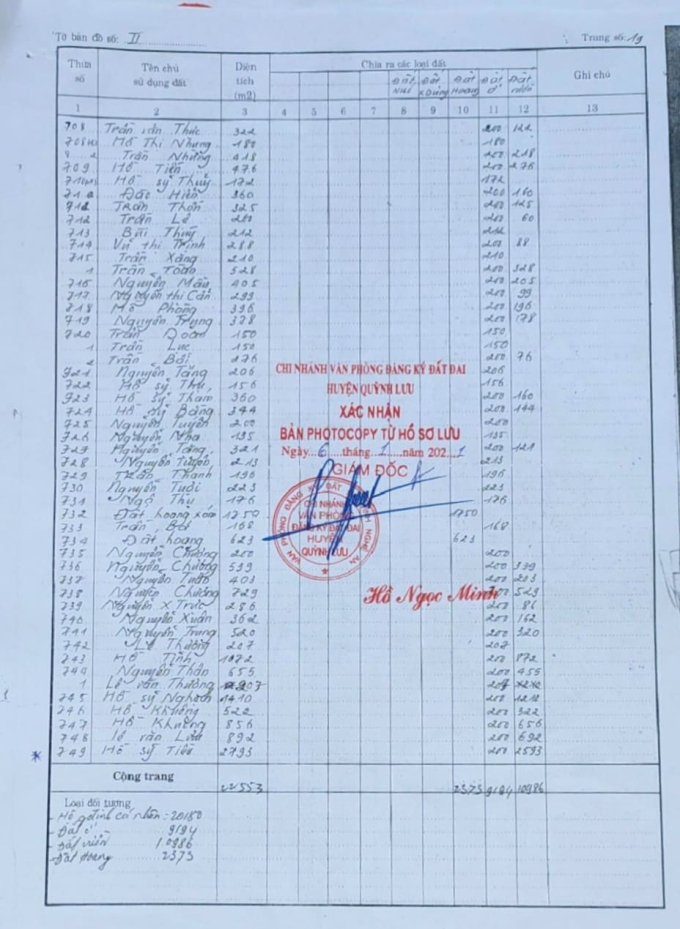 Tờ bản đồ số: II
Trang số: 19
Thửa số | Tên chủ sử dụng đất | Diện tích (m2) | Chia ra các loại đất | Ghi chú
Đất Hoang | Đất ở | Đất vườn
1 2 3 4 5 6 7 8 9 10 11 12 13
708 Trần văn Thức 322 200 122
Hồ Thị Nhung 180 180
2 Trần Những 418 200 218
709 Hồ Tiến 476 200 276
Hồ sỹ Thuỷ 172 172
Đào Hiền 360 200 160
Trần Thơn 325 200 125
712 Trần Lê 60
713 Bùi Thuỷ 212 212
714 Thị Trinh 288 200 88
715 Trần Xáng 210 210
1 Trần Toàn 528 200 328
716 Nguyễn Mậu 405 200 205
717 Nguyễn thị Cần 299 200 99
718 Hồ Phòng 396 200 196
719 Nguyễn Trung 378 200 178
720 Trần 150 150
1 Trần Lực 150 150
2 Trần Bôi 276 200 76
721 Nguyễn Tăng 206 206
722 Hồ sỹ Thụ 156 156
723 Hồ sỹ Tham 360 200 160
724 Hồ sỹ Bằng 344 200 144
725 Nguyễn Tuyên 200 200
726 Nguyễn Nha 195 195
727 Nguyễn Tăng 321 200 121
728 Nguyễn 213 213
729 Trần Thanh 196 196
730 Nguyễn Tuởi 223 223
731 Ngô Thụ 176 176
732 Đất hoang xóm 1750 1750
733 Trần Bôi 168 168
734 Đất hoang 623 623
735 Nguyễn Chương 200 200
736 Nguyễn Chương 539 200 339
737 Nguyễn Tuấn 403 200 203
738 Nguyễn Chương 729 200 529
739 Nguyễn X Trực 286 200 86
740 Nguyễn Xuân 362 200 162
741 Nguyễn Trung 520 200 320
742 Lê Thường 207 207
743 Hồ Tịnh 1072 200 872
744 Nguyễn Thân 655 200 455
1 Lê văn Thường
745 Hồ sỹ 1410 200 1210
746 Hồ Khường 522 200 322
747 Hồ Khường 856 200 656
748 lê văn Lưu 892 200 692
* 749 Hồ sỹ Tiến 2793 200 2593
CHI NHÁNH VĂN PHÒNG ĐĂNG KÝ ĐẤT ĐAI
HUYỆN QUỲNH LƯU
XÁC NHẬN
BẢN PHOTOCOPY TỪ HỒ SƠ LƯU
Ngày 6 tháng 1 năm 2021
GIÁM ĐỐC
CHI NHÁNH
VĂN PHÒNG
ĐĂNG KÝ ĐẤT ĐAI
HUYỆN
QUỲNH LƯU
Hồ Ngọc Minh
Cộng trang 22553 2373 9194 10986
Loại đối tượng
- Hộ gđình cá nhân: 20180
- Đất ở 9194
- Đất vườn 10986
- Đất Hoang 2373